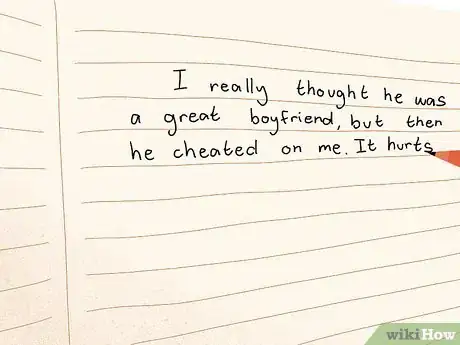 I really thought he was
a great boyfriend, but then
he cheated on me. It hurts
wikiHow